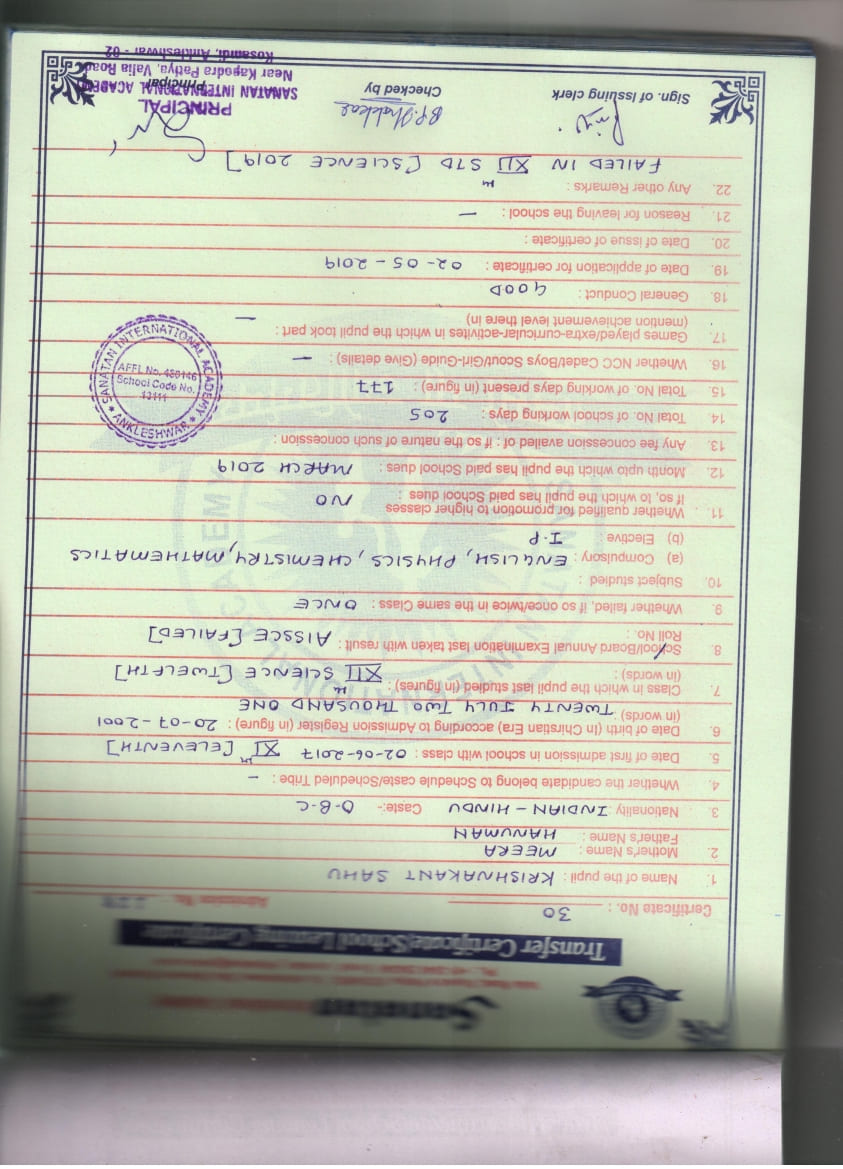 Transfer Certificate/School Leaving Certificate
Certificate No. : 30 Admission No.
1. Name of the pupil : KRISHNAKANT SAHU
2. Mother's Name : MEERA
Father's Name : HANUMAN
3. Nationality : INDIAN - HINDU Caste:- O.B.C
4. Whether the candidate belong to Schedule caste/Scheduled Tribe : -
5. Date of first admission in school with class : 02-06-2017 XI th [ELEVENTH]
6. Date of birth (in Chirstian Era) according to Admission Register (in figure) : 20-07-2001
(in words) TWENTY JULY TWO THOUSAND ONE
7. Class in which the pupil last studied (in figures) : XII th SCIENCE [TWELFTH]
(in words) :
8. School/Board Annual Examination last taken with result : AISSCE [FAILED]
Roll No. :
9. Whether failed, if so once/twice in the same Class : ONCE
10. Subject studied :
(a) Compulsory : ENGLISH, PHYSICS, CHEMISTRY, MATHEMATICS
(b) Elective : I.P
11. Whether qualified for promotion to higher classes
If so, to which the pupil has paid School dues : NO
12. Month upto which the pupil has paid School dues : MARCH 2019
13. Any fee concession availed of : if so the nature of such concession :
14. Total No. of school working days : 205
15. Total No. of working days present (in figure) : 177
16. Whether NCC Cadet/Boys Scout/Girl-Guide (Give details) : -
17. Games played/extra-curricular-activites in which the pupil took part :
(mention achievement level there in) -
SANATAN INTERNATIONAL ACADEMY
AFFL No. 430146
School Code No.
13111
ANKLESHWAR
18. General Conduct : GOOD
19. Date of application for certificate : 02-05-2019
20. Date of issue of certificate :
21. Reason for leaving the school : -
22. Any other Remarks :
FAILED IN XII th STD [SCIENCE 2019]
Sign. of Issuing clerk Checked by Principal
PRINCIPAL
SANATAN INTERNATIONAL ACADEMY
Near Kapodra Patiya, Valia Road
Kosamdi, Ankleshwar - 02
SANATAN INTERNATIONAL ACADEMY